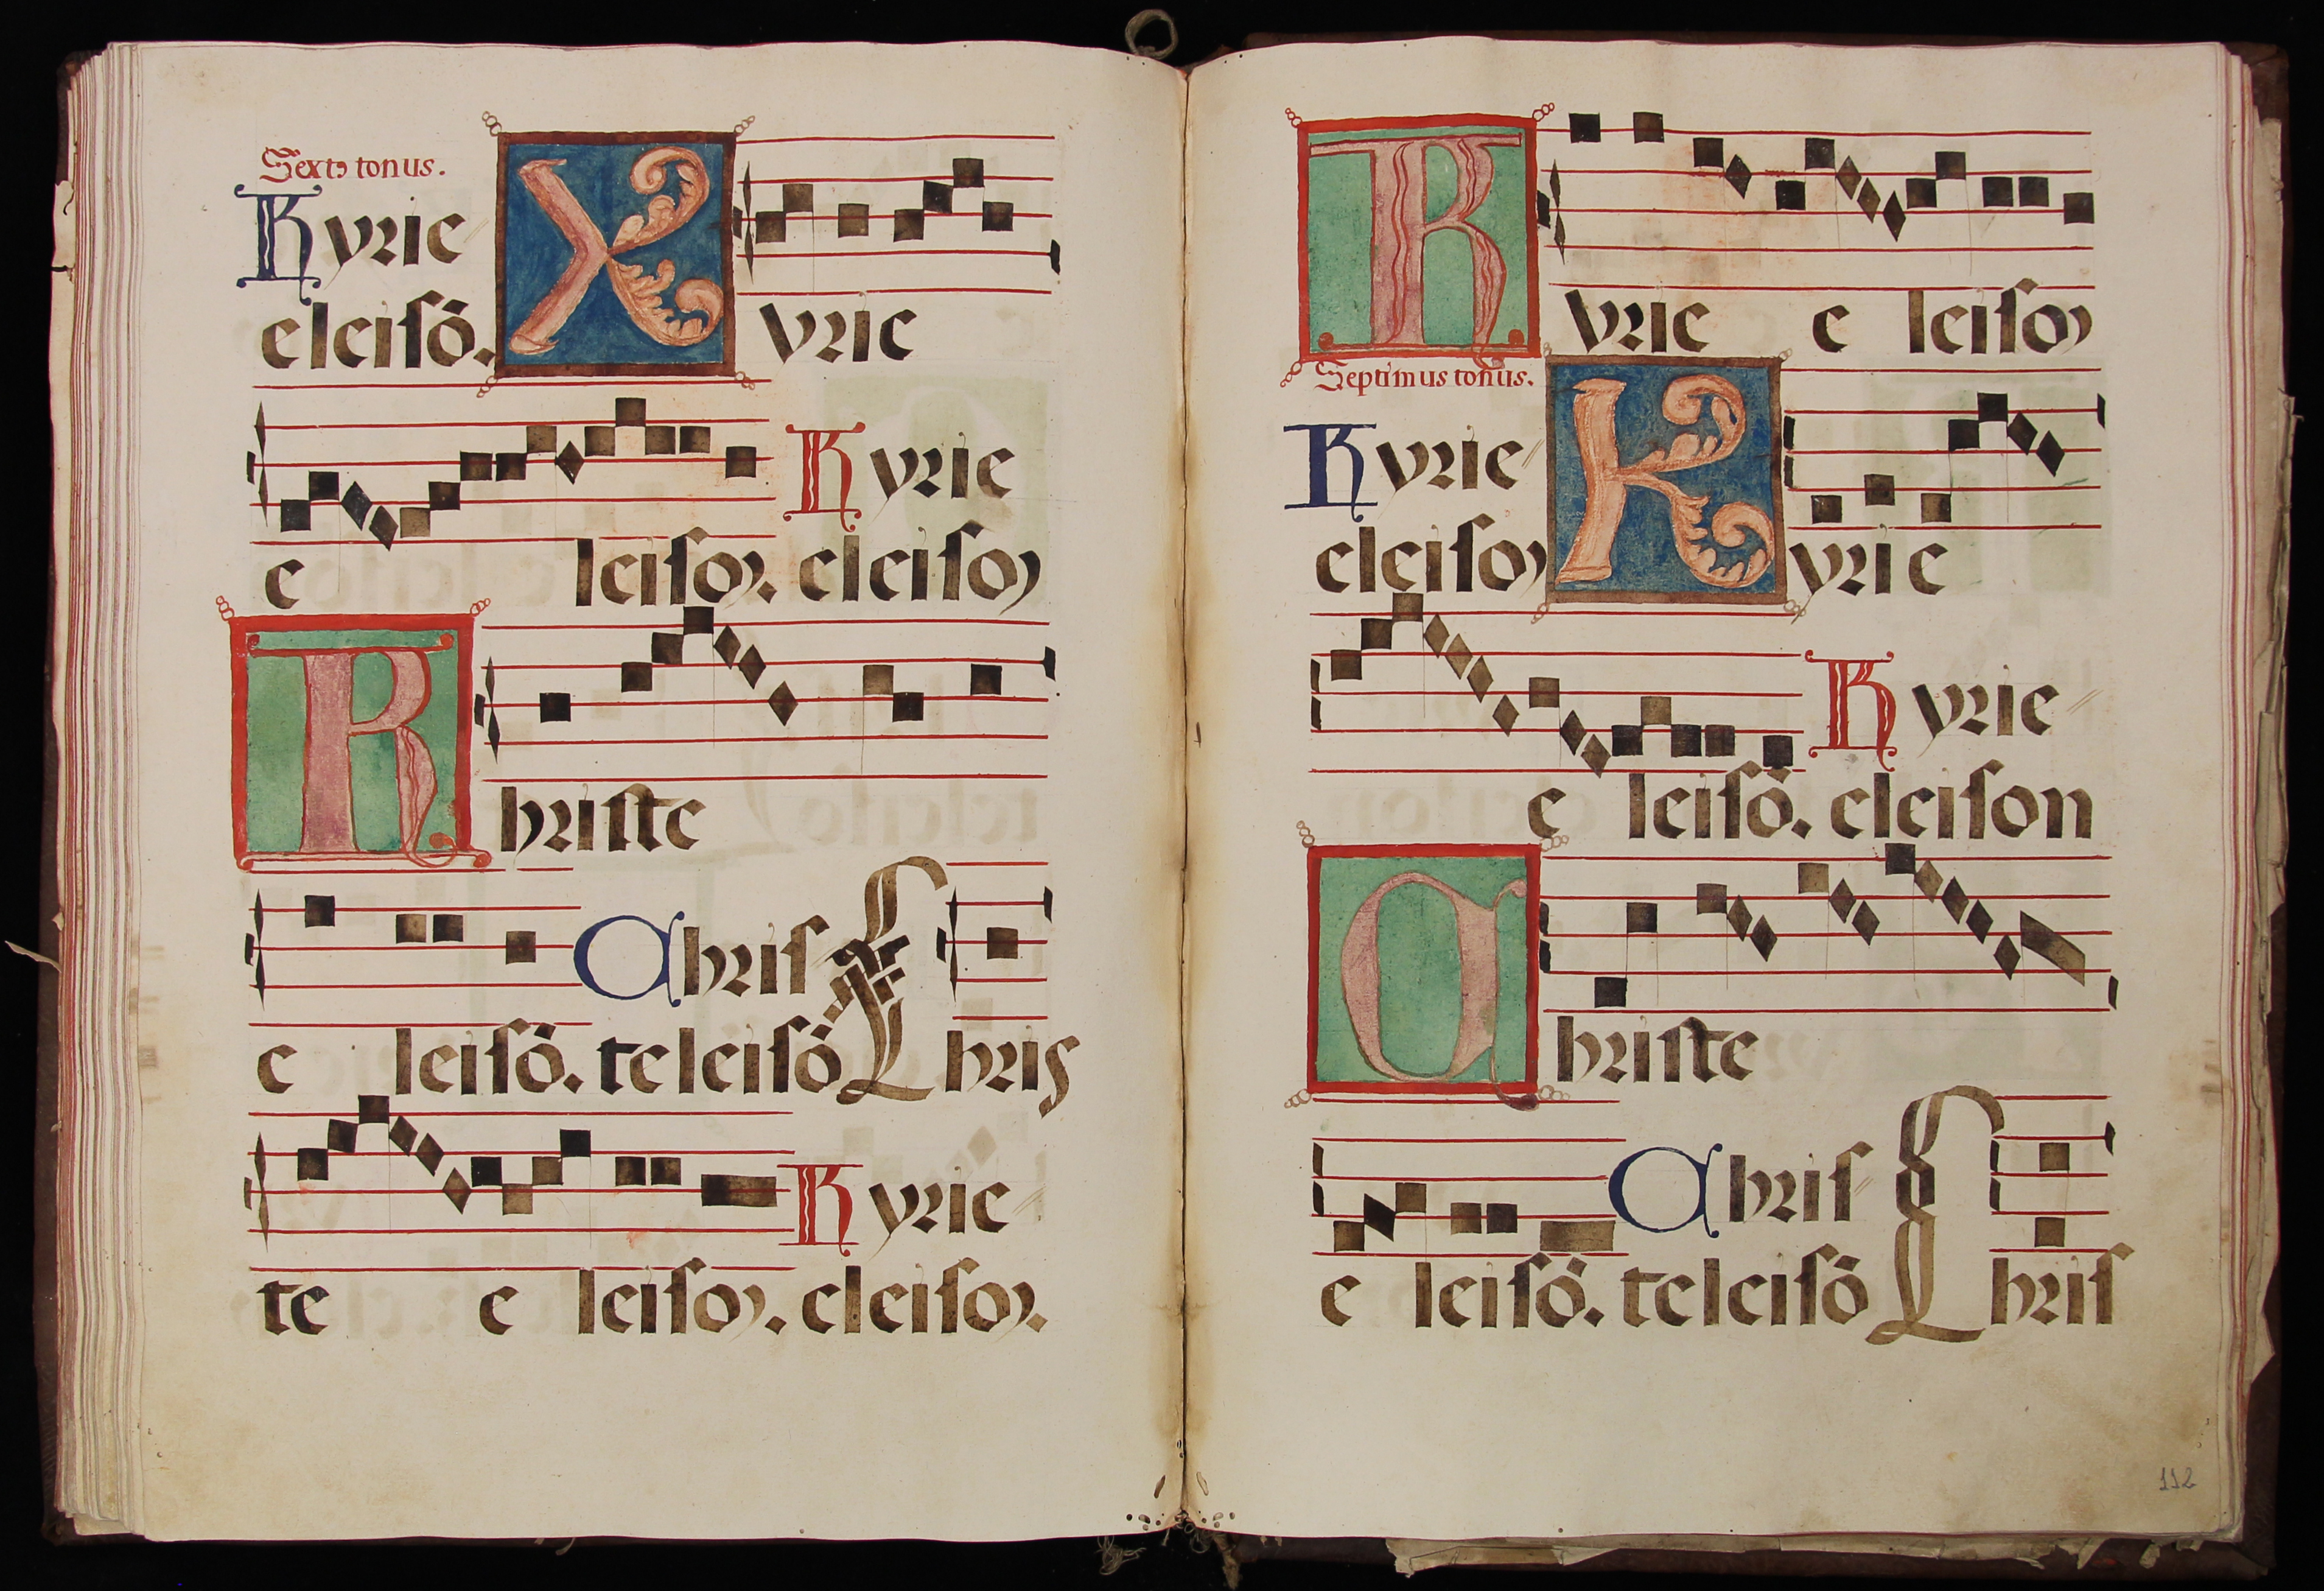 Sextꝰ tonus.
Kyrie X
eleisō. yrie
Kyrie
e leison. eleison
K hriste
Chris
e leisō. te leisō Chris
Kyrie
te e leison. eleison.
K yrie e leison
Septimus tonus.
Kyrie K
eleison yrie
Kyrie
e leisō. eleison
C hriste
Chris
e leisō. te leisō Chris
112